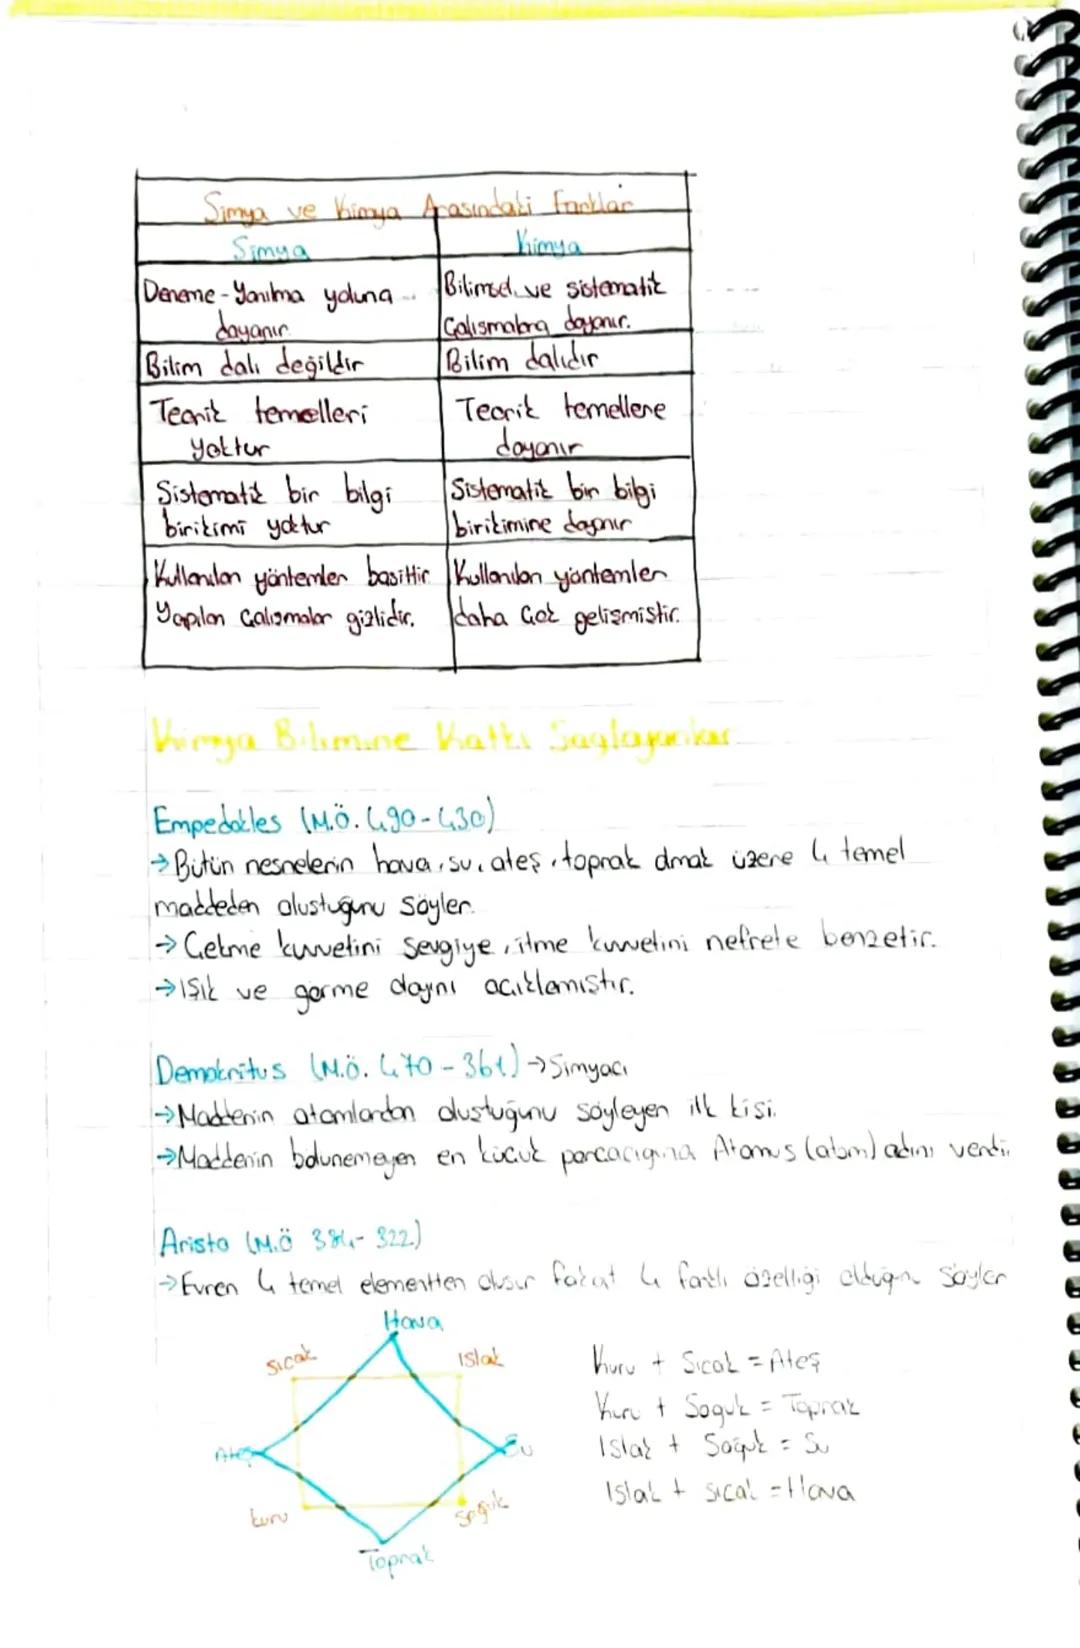 Simya ve Kimya Arasındaki Farklar
Simya Kimya
Deneme-Yanılma yoluna dayanır.
Bilimsel ve sistematik Çalışmalara dayanır.
Bilim dalı değildir
Bilim dalıdır
Teorik temelleri yoktur
Teorik temellere dayanır
Sistematik bir bilgi birikimi yoktur
Sistematik bir bilgi birikimine dayanır
Kullanılan yöntemler basittir Yapılan Çalışmalar gizlidir.
Kullanılan yöntemler daha Çok gelişmiştir.
Kimya Bilimine Katkı Sağlayanlar
Empedokles (M.Ö. 490-430)
→Bütün nesnelerin hava, su, ateş, toprak olmak üzere 4 temel
maddeden oluştuğunu söyler.
→Çekme kuvvetini sevgiye, itme kuvvetini nefrete benzetir.
→Işık ve görme olayını açıklamıştır.
Demokritus (M.Ö. 470-361)→Simyacı
→Maddenin atomlardan oluştuğunu söyleyen ilk kişi.
→Maddenin bölünemeyen en küçük parçacığına Atomus (atom) adını verdi.
Aristo (M.Ö 384-322)
→Evren 4 temel elementten oluşur fakat 4 farklı özelliği olduğunu söyler
Hava
Sıcak Islak
Ateş Su
kuru soğuk
Toprak
Kuru + Sıcak = Ateş
Kuru + Soguk = Toprak
Islak + Soğuk = Su
Islak + sıcak = Hava